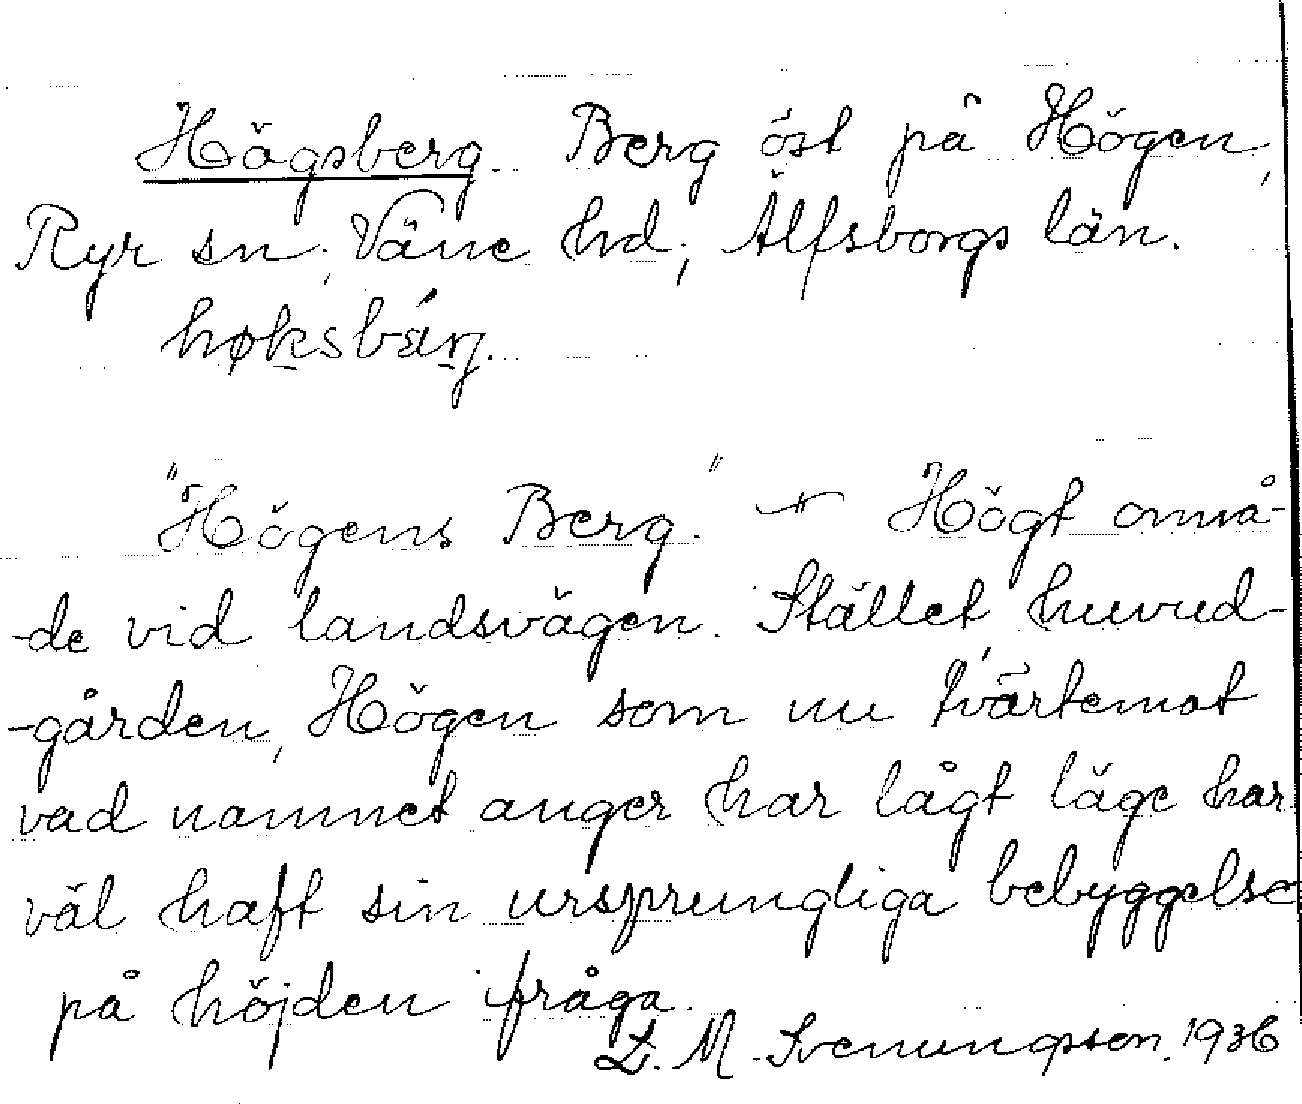 Högsberg. Berg öst på Högen,
Ryr sn, Väne hd, Älfsborgs län.
høksbárj.
"Högens Berg." Högt områ-
-de vid landsvägen. Stället huvud-
-gården, Högen som nu tvärtemot
vad namnet anger har lågt läge har
väl haft sin ursprungliga bebyggelse
på höjden ifråga.
L. M. Svenungsson. 1936